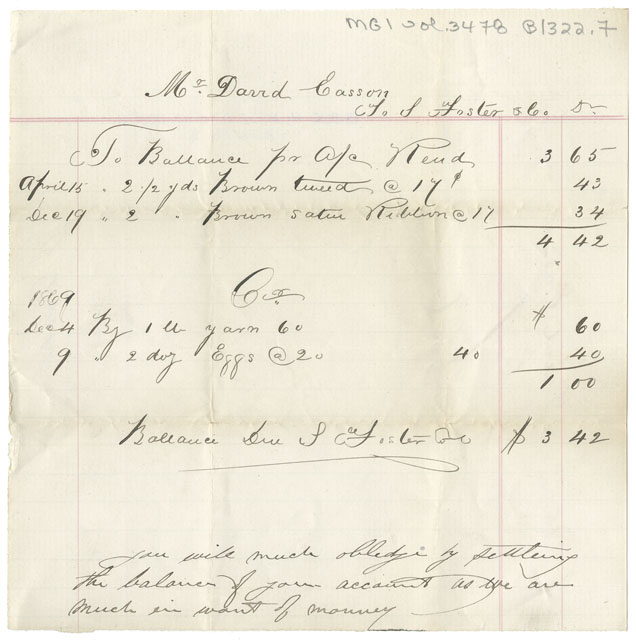 MG1 vol. 3478 B1322.7
Mr. David Casson
To S Foster & Co. Dr
To Ballance pr a/c Rend 3 65
April 15 " 2 1/2 yds Brown tweed @ 17¢ 43
Dec 19 " 2 " Brown satin Ribbon @ 17 34
4 42
1869 Cr
Dec 4 By 1 lb yarn 60 $ 60
9 " 2 doz Eggs @ 20 40 40
1 00
Ballance Due S Foster & Co $ 3 42
you will much obledge by settleing
the balance of your account as we are
much in want of monney